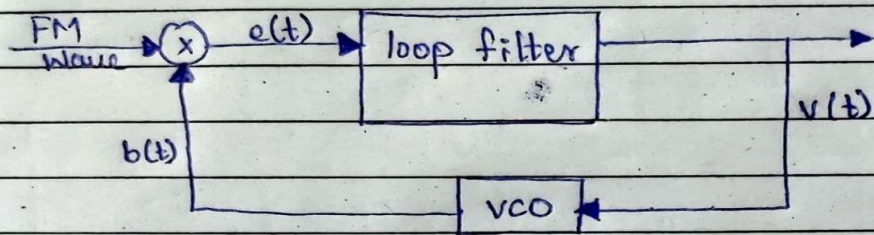 FM
Wave
x
e(t)
loop filter
v(t)
b(t)
VCO